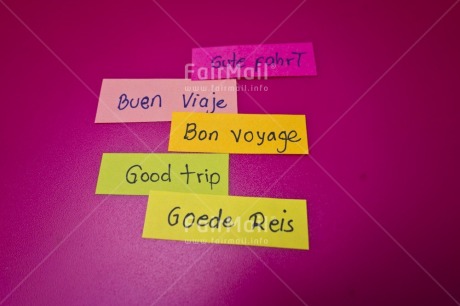 Gute fahrT
FairMail
www.fairmail.info
Buen Viaje
Bon voyage
Good trip
Goede Reis
FairMail
www.fairmail.info